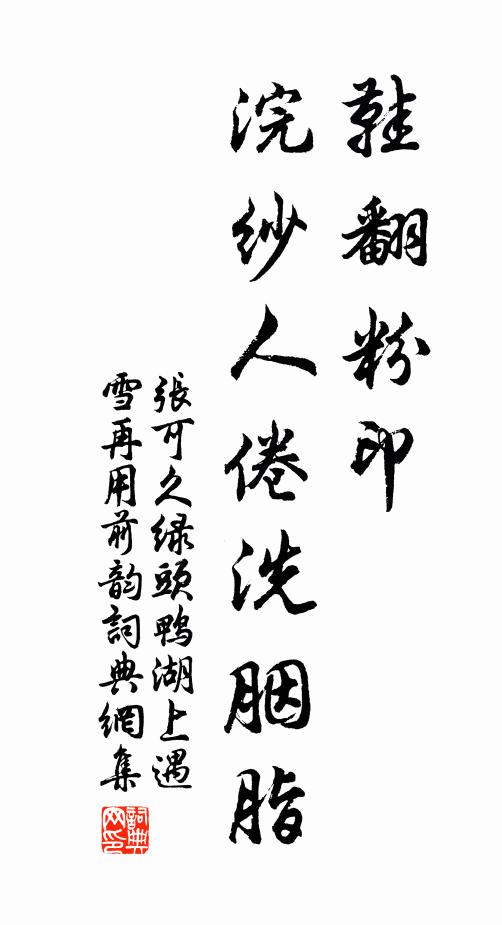 鞋翻粉印
浣紗人倦洗胭脂
張可久綠頭鴨湖上遇
雪再用前韵詞典網集
詞典
网印